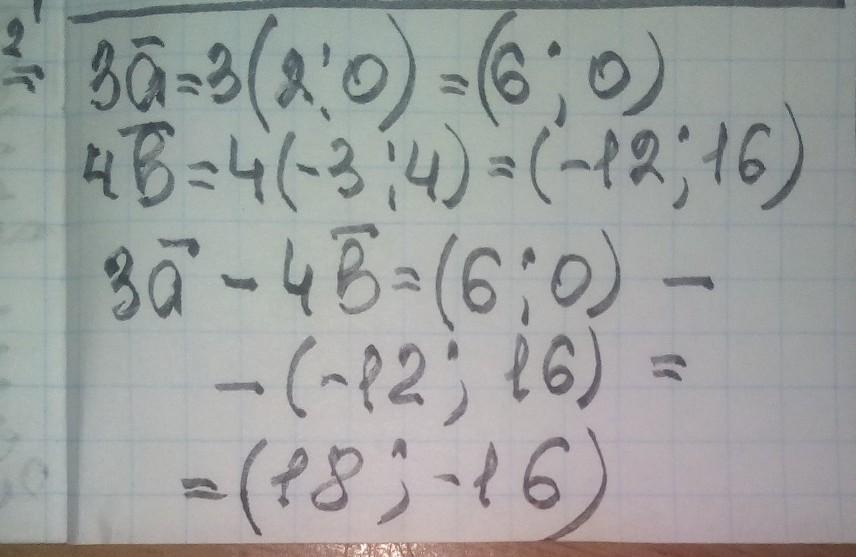 3a̅ = 3(2; 0) = (6; 0)
4B̅ = 4(-3; 4) = (-12; 16)
3a̅ - 4B̅ = (6; 0) -
- (-12; 16) =
= (18; -16)